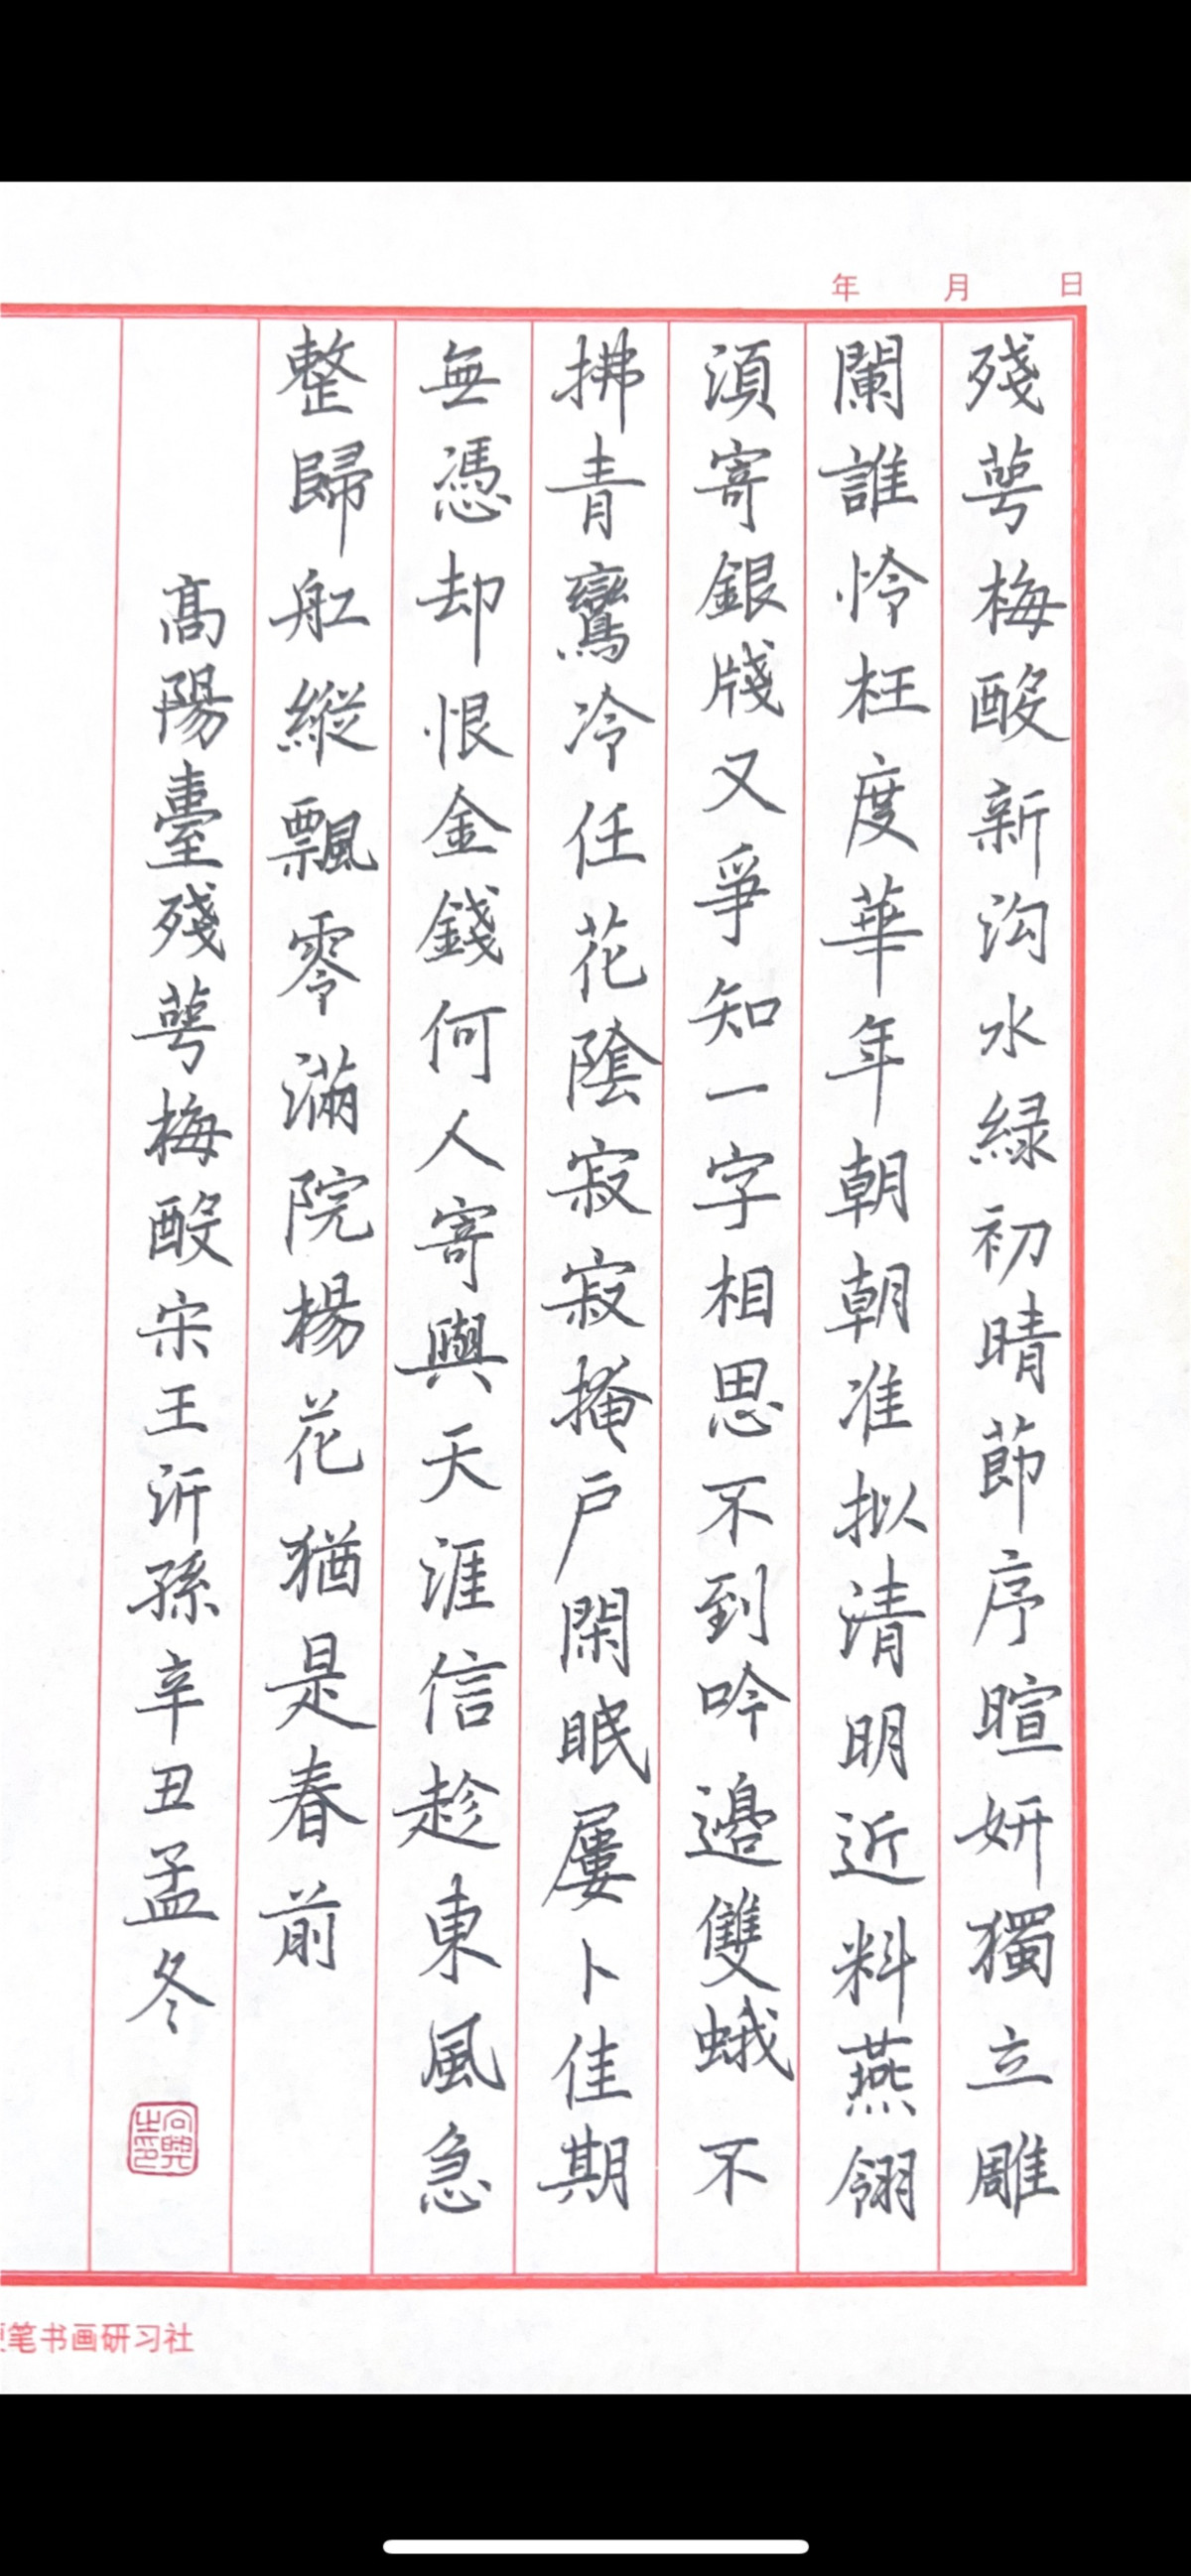 年 月 日
殘萼梅酸新沟水緑初晴節序暄妍獨立雕
闌誰怜枉度華年朝朝准拟清明近料燕翎
湏寄銀牋又爭知一字相思不到吟邊雙蛾不
拂青鸞冷任花陰寂寂掩戸閑眠屢卜佳期
無憑却恨金錢何人寄與天涯信趁東風急
整歸舡縱飄零滿院楊花猶是春前
髙陽臺殘萼梅酸宋王沂孫辛丑孟冬
笔书画研习社